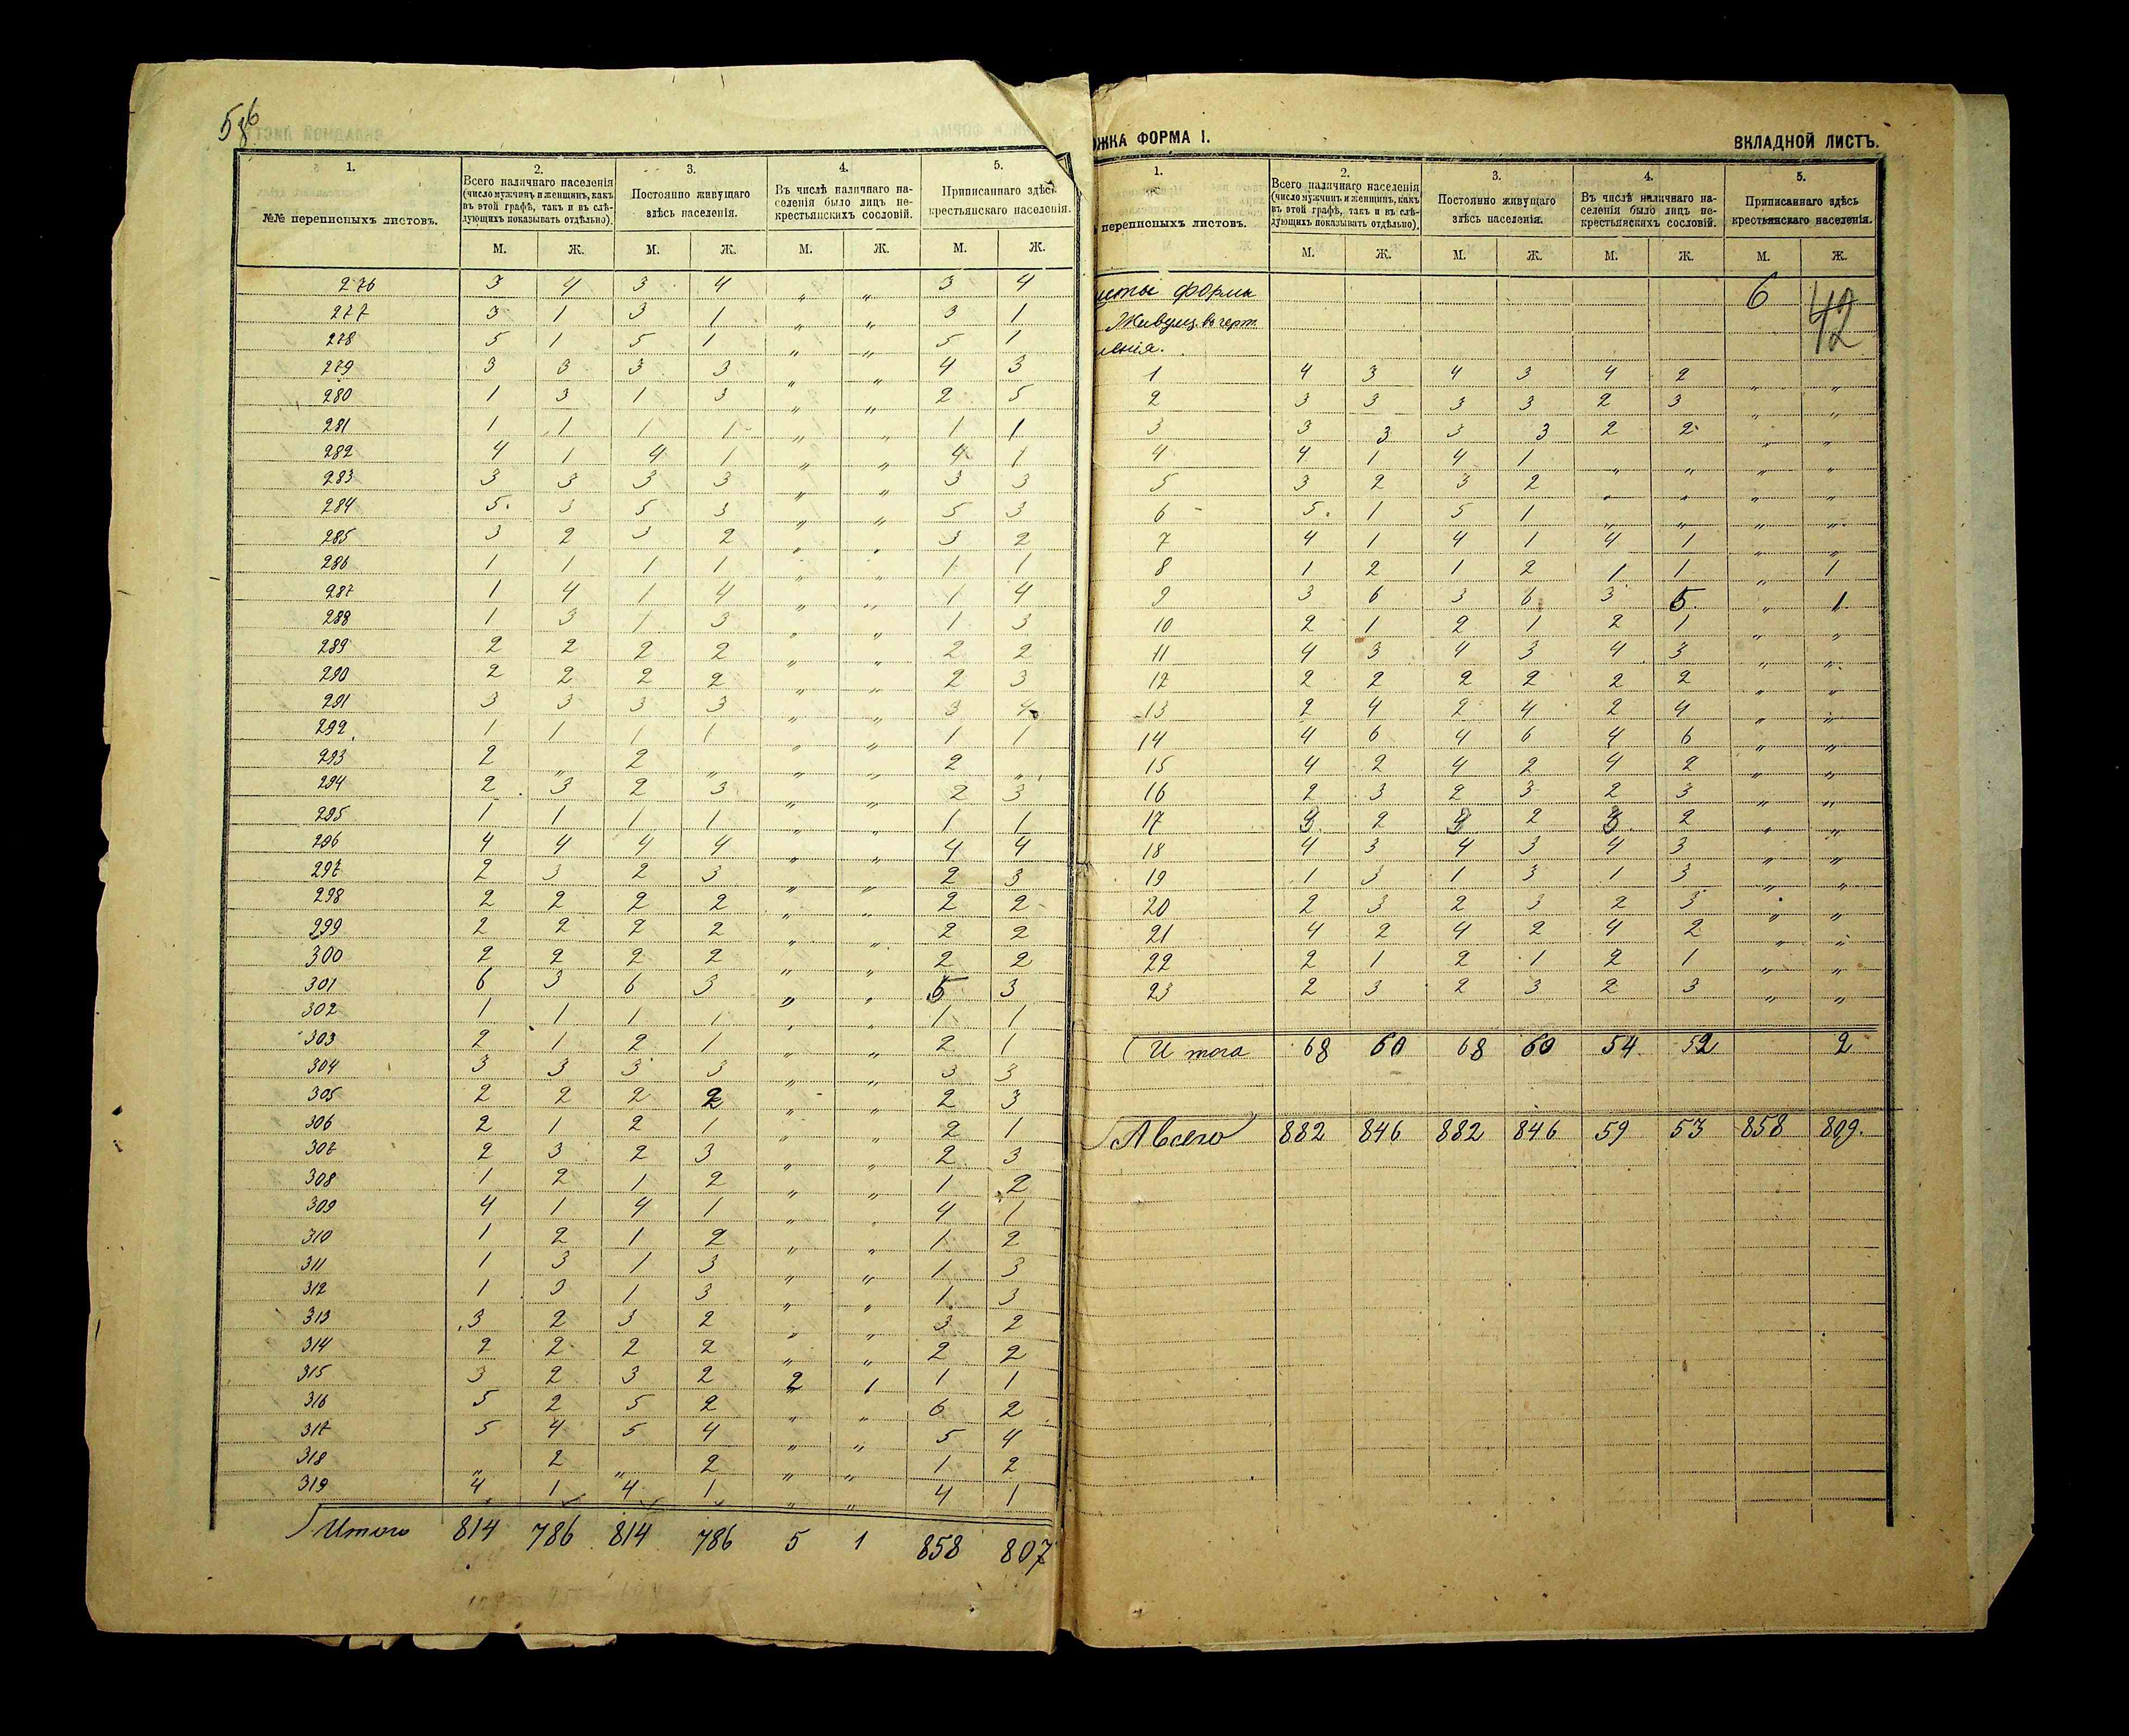 586
1. 2. 3. 4. 5.
№№ переписныхъ листовъ.
Всего наличнаго населенія
(число мужчинъ и женщинъ, какъ
въ этой графѣ, такъ и въ слѣ-
дующихъ показывать отдѣльно).
Постоянно живущаго
здѣсь населенія.
Въ числѣ наличнаго на-
селенія было лицъ не-
крестьянскихъ сословій.
Приписаннаго здѣсь
крестьянскаго населенія.
М. Ж. М. Ж. М. Ж. М. Ж.
276 3 4 3 4 " " 3 4
277 3 1 3 1 " " 3 1
278 5 1 5 1 " " 5 1
279 3 3 3 3 " " 4 3
280 1 3 1 3 " " 2 5
281 1 1 1 1 " " 1 1
282 4 1 4 1 " " 4 1
283 3 3 3 3 " " 3 3
284 5 3 5 3 " " 5 3
285 3 2 3 2 " " 3 2
286 1 1 1 1 " " 1 1
287 1 4 1 4 " " 1 4
288 1 3 1 3 " " 1 3
289 2 2 2 2 " " 2 2
290 2 2 2 2 " " 2 3
291 3 3 3 3 " " 3 4
292 1 1 1 1 " " 1 1
293 2 " 2 " " " 2 "
294 2 3 2 3 " " 2 3
295 1 1 1 1 " " 1 1
296 4 4 4 4 " " 4 4
297 2 3 2 3 " " 2 3
298 2 2 2 2 " " 2 2
299 2 2 2 2 " " 2 2
300 2 2 2 2 " " 2 2
301 6 3 6 3 " " 5 3
302 1 1 1 1 " " 1 1
303 2 1 2 1 " " 2 1
304 3 3 3 3 " " 3 3
305 2 2 2 2 " " 2 3
306 2 1 2 1 " " 2 1
307 2 3 2 3 " " 2 3
308 1 2 1 2 " " 1 2
309 4 1 4 1 " " 4 1
310 1 2 1 2 " " 1 2
311 1 3 1 3 " " 1 3
312 1 3 1 3 " " 1 3
313 3 2 3 2 " " 3 2
314 2 2 2 2 " " 2 2
315 3 2 3 2 2 1 1 1
316 5 2 5 2 " " 6 2
317 5 4 5 4 " " 5 4
318 " 2 " 2 " " 1 2
319 4 1 4 1 " " 4 1
Итого 814 786 814 786 5 1 858 807
ОЖКА ФОРМА I. ВКЛАДНОЙ ЛИСТЪ.
1. 2. 3. 4. 5.
переписныхъ листовъ.
Всего наличнаго населенія
(число мужчинъ и женщинъ, какъ
въ этой графѣ, такъ и въ слѣ-
дующихъ показывать отдѣльно).
Постоянно живущаго
здѣсь населенія.
Въ числѣ наличнаго на-
селенія было лицъ не-
крестьянскихъ сословій.
Приписаннаго здѣсь
крестьянскаго населенія.
М. Ж. М. Ж. М. Ж. М. Ж.
исты форма 6 42
Живущ. въ черт.
ленія.
1 4 3 4 3 4 2 " "
2 3 3 3 3 2 3 " "
3 3 3 3 3 2 2 " "
4 4 1 4 1 " " " "
5 3 2 3 2 " " " "
6 5 1 5 1 " " " "
7 4 1 4 1 4 1 " "
8 1 2 1 2 1 1 " 1
9 3 6 3 6 3 5 " 1
10 2 1 2 1 2 1 " "
11 4 3 4 3 4 3 " "
12 2 2 2 2 2 2 " "
13 2 4 2 4 2 4 " "
14 4 6 4 6 4 6 " "
15 4 2 4 2 4 2 " "
16 2 3 2 3 2 3 " "
17 3 2 3 2 3 2 " "
18 4 3 4 3 4 3 " "
19 1 3 1 3 1 3 " "
20 2 3 2 3 2 3 " "
21 4 2 4 2 4 2 " "
22 2 1 2 1 2 1 " "
23 2 3 2 3 2 3 " "
Итого 68 60 68 60 54 52 2
А всего 882 846 882 846 59 53 858 809.